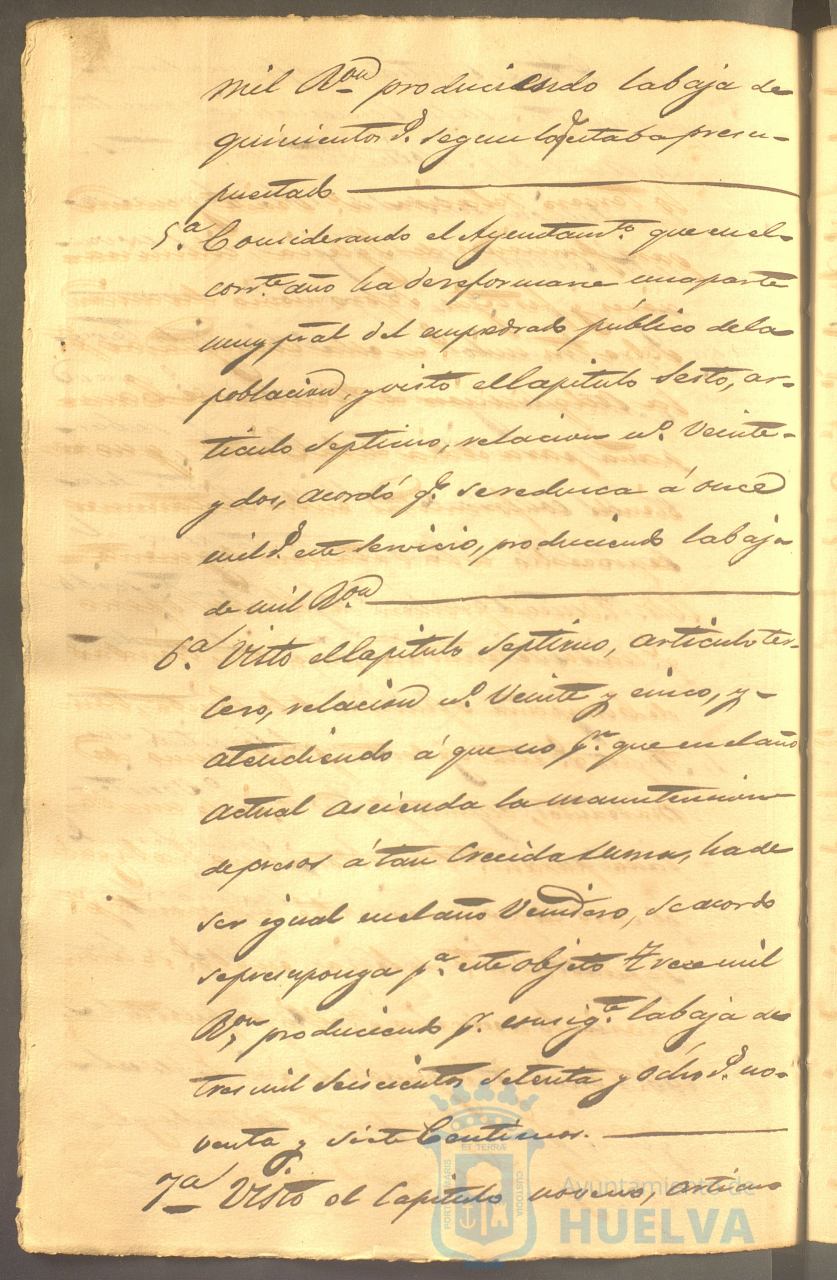 mil R.on produciendo la baja de
quinientos r.s segun lo q.e estaba presu-
puestado
5.a Considerando el Ayuntam.to que en el
corr.te año ha de reformarse una parte
muy pral del empedrado público de la
poblacion, y visto el Capitulo Sesto, ar-
ticulo Septimo, relacion n.o Veinte-
y dos, acordó q.e se reduzca á once
mil r.s este Servicio, produciendo la baja
de mil R.on
6.a Visto el Capitulo Septimo, articulo ter-
cero, relacion n.o Veinte y cinco, y-
atendiendo á que no p.r que en el año
actual ascienda la manutencion
de presos á tan crecida suma, ha de
ser igual en el año Venidero, se acordo
se presuponga p.a este objeto trece mil
R.on produciendo p.r consig.te la baja de
tres mil Seiscientos setenta y ocho r.s no-
venta y siete Centimos.
7.a Visto el Capitulo noveno, articu
Ayuntamiento de
HUELVA
PORTUS MARIS
ET TERRÆ
CUSTODIA